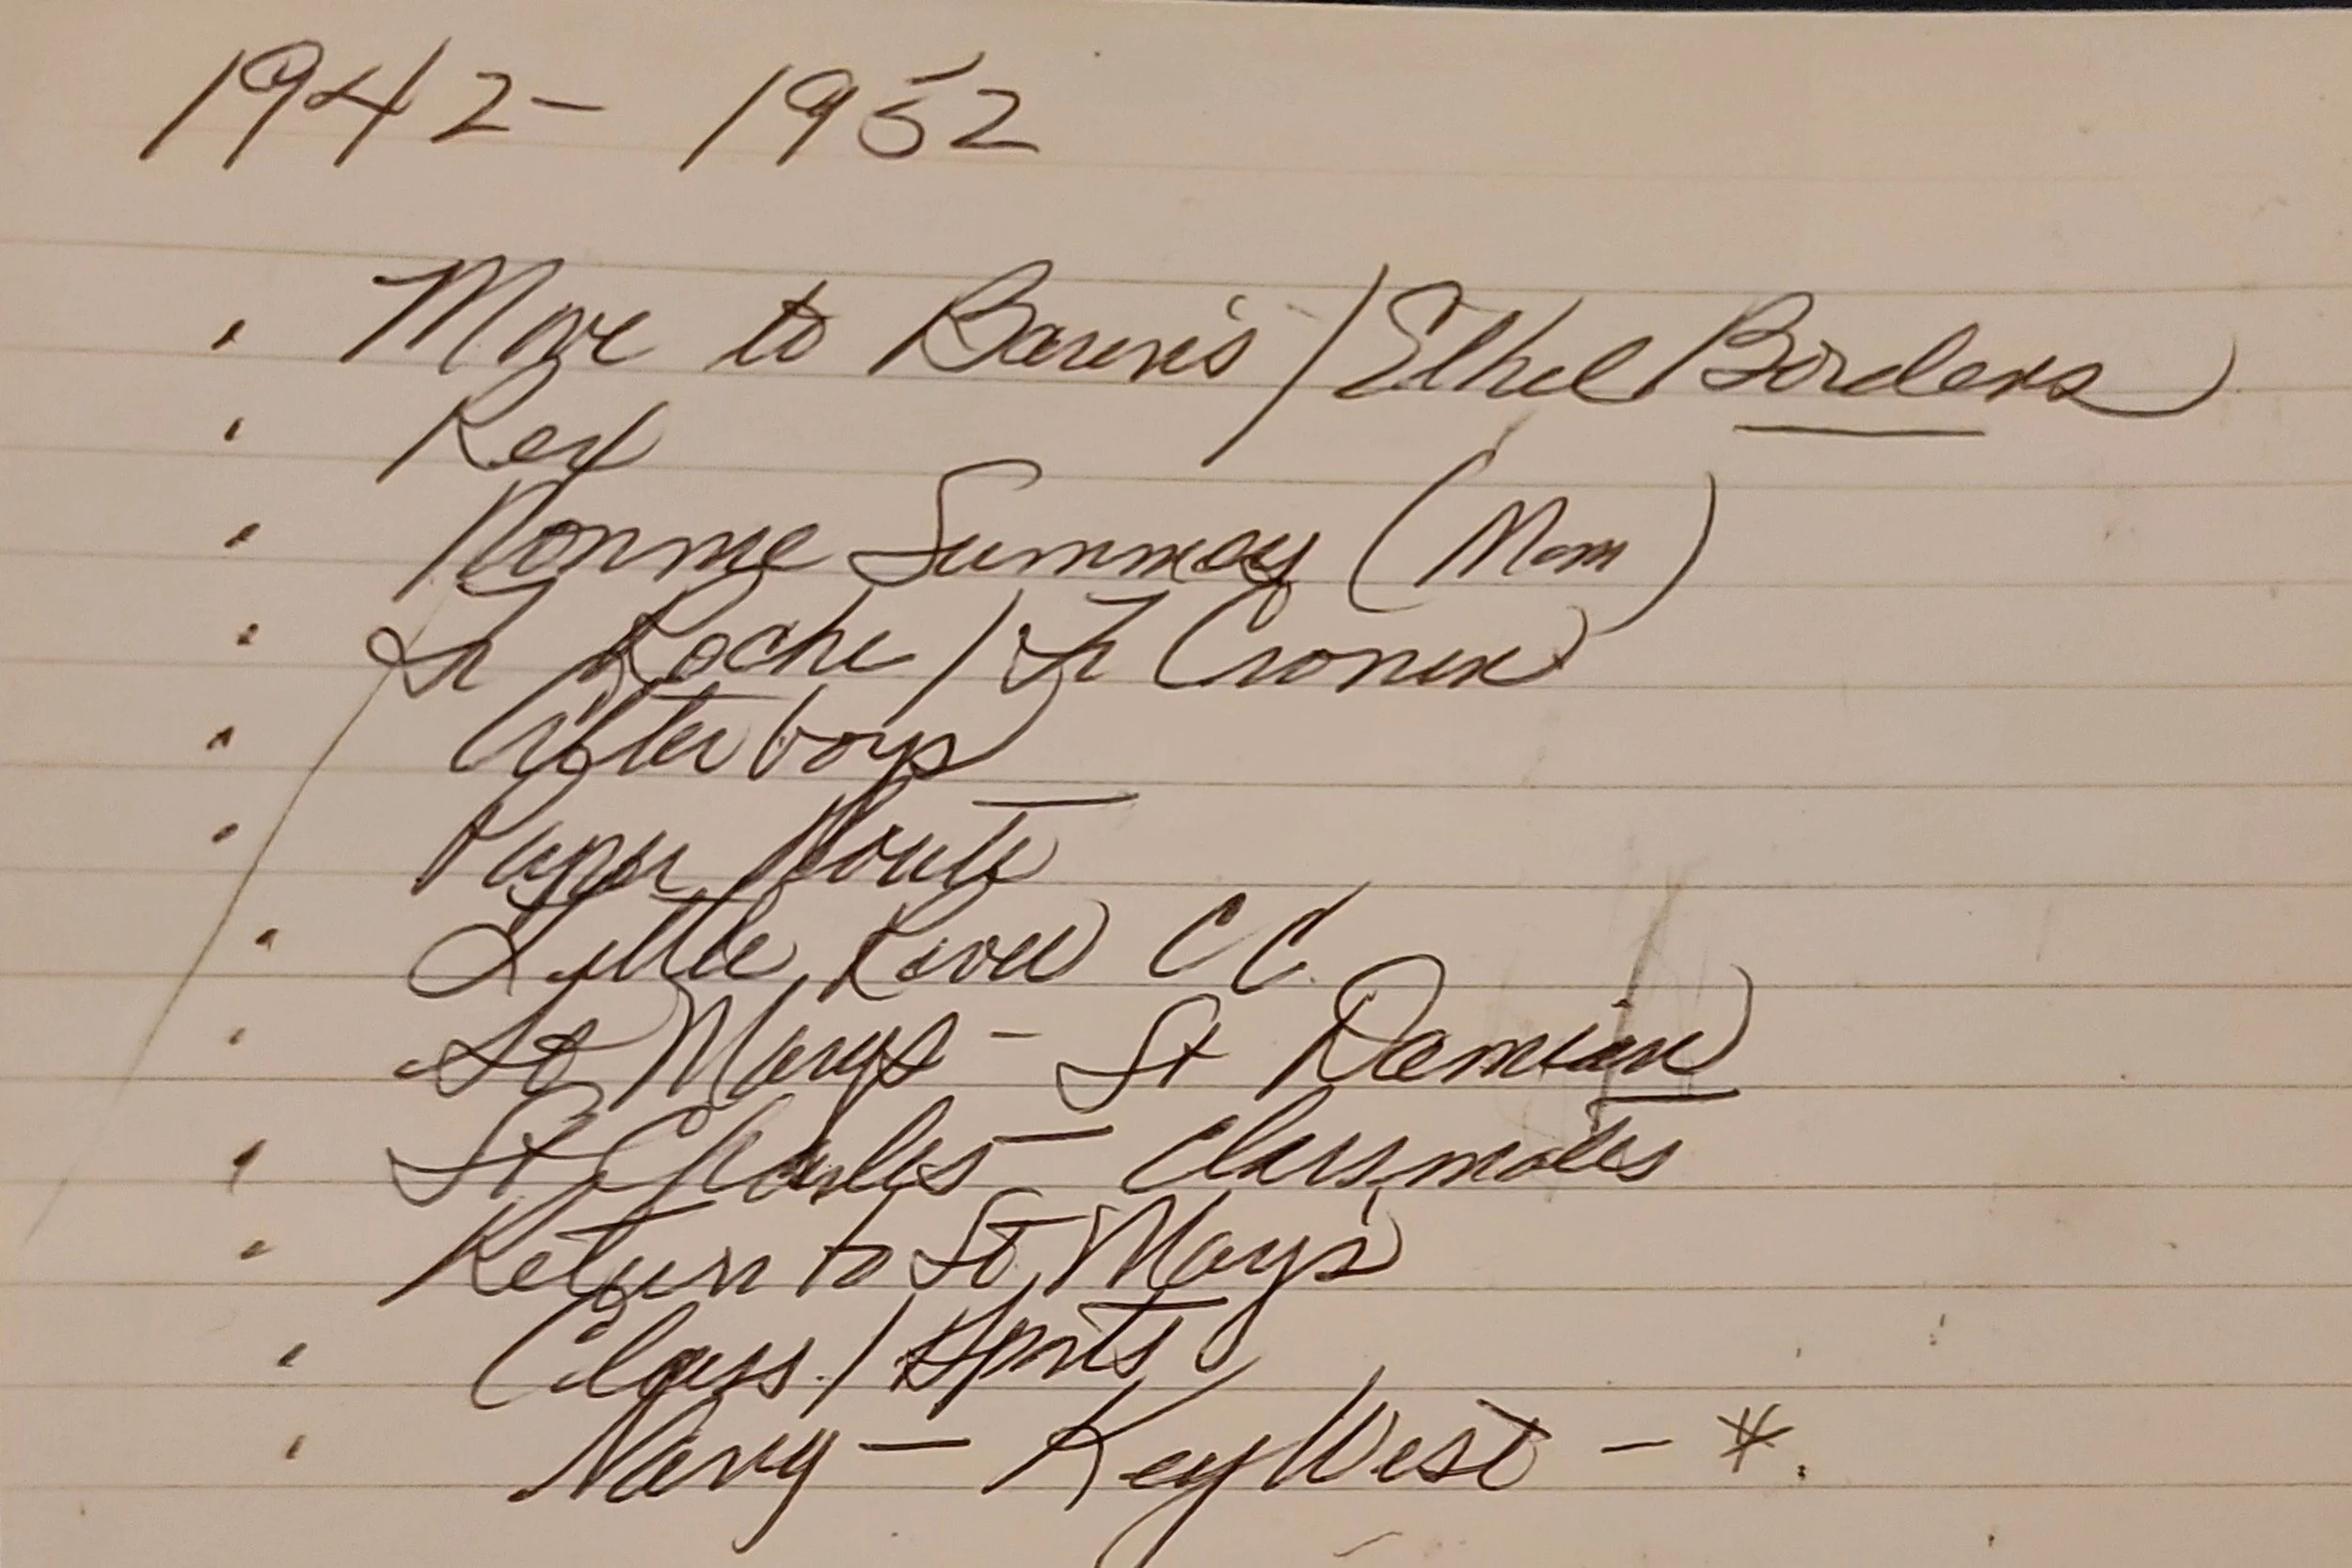 1942 - 1952
• Move to Barne's / Ethel Borders
• Rex
• Nonnie Summey (Mom)
• Sr Roche / Fr Cronin
• Alter boys
• Paper Route
• Little River CC.
• St Marys - St Damian
• St Charles - Classmates
• Return to St, Mary's
• Class / Sports
• Navy - Key West - *